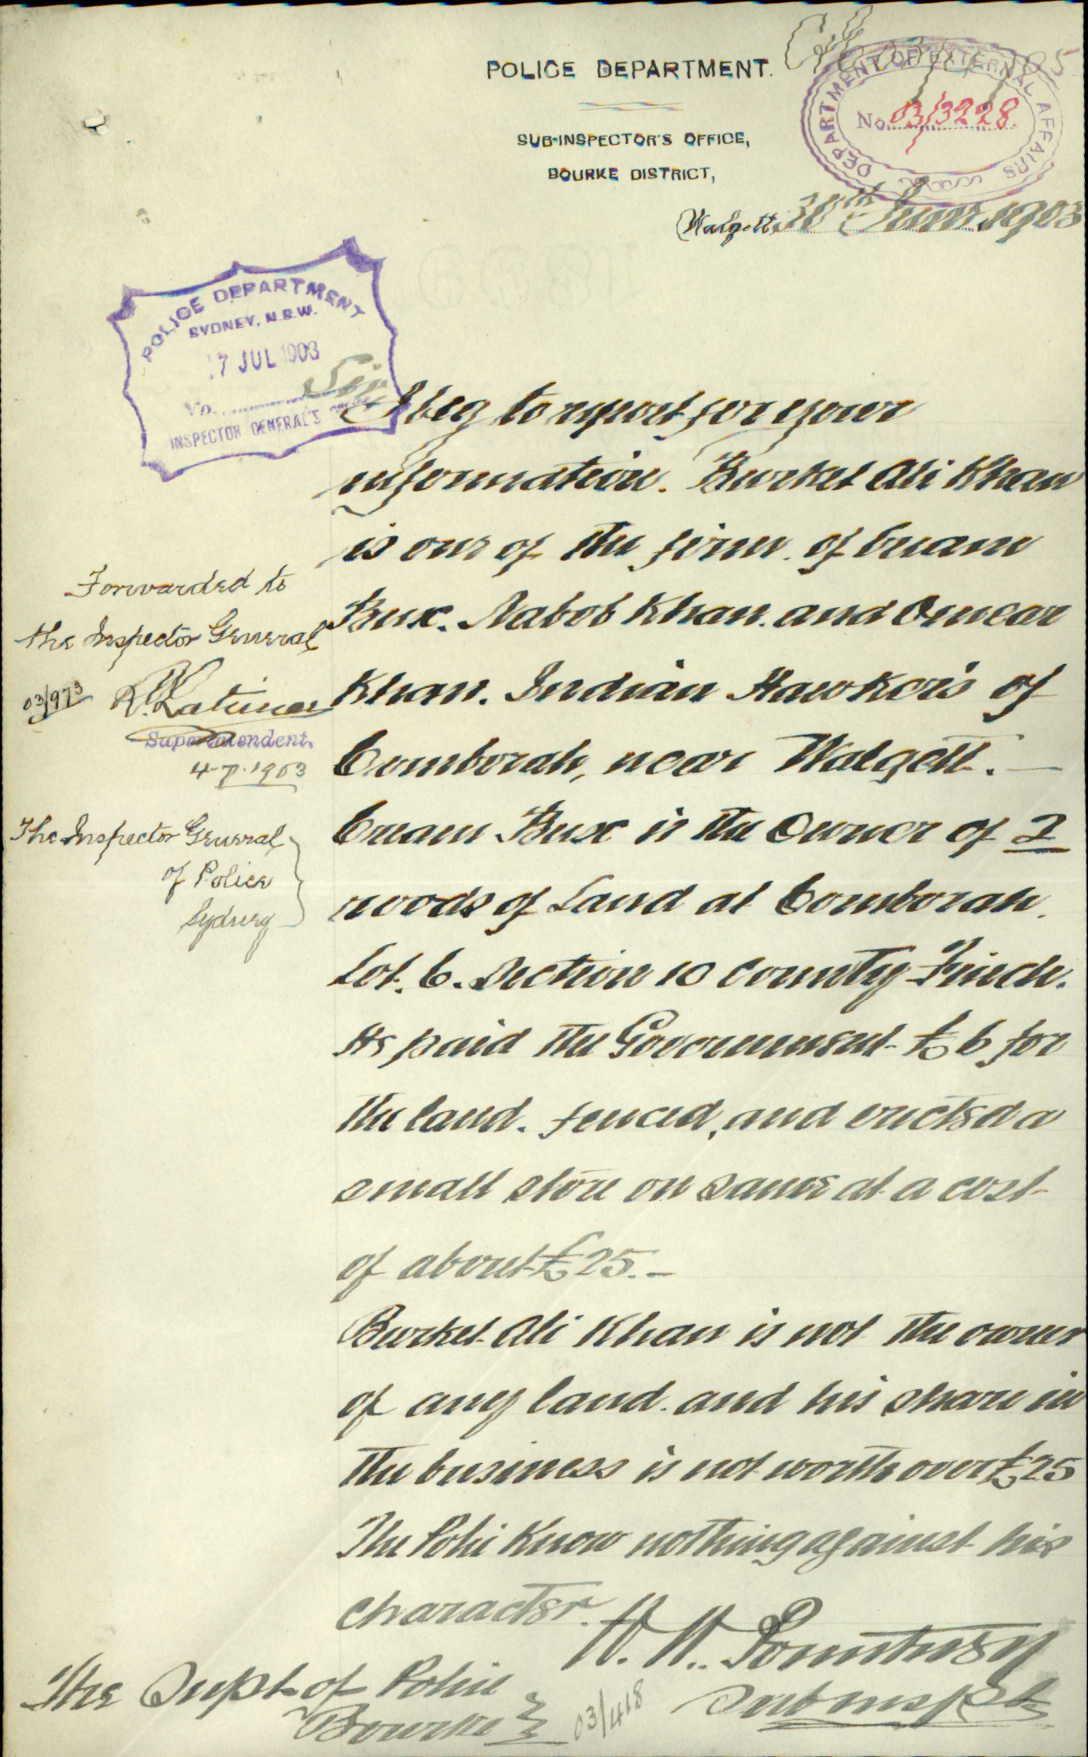 POLICE DEPARTMENT.
SUB-INSPECTOR'S OFFICE,
BOURKE DISTRICT,
DEPARTMENT OF EXTERNAL AFFAIRS
No. 03/3228
Walgett 30th June 1903
POLICE DEPARTMENT
SYDNEY, N.S.W.
7 JUL 1903
No.
INSPECTOR GENERAL'S
Sir
I beg to report for your
information. Burket Ali Khan
is one of the firm of Cream
Bux. Nabob Khan. and Omear
Khan. Indian Hawkers of
Cumborah, near Walgett. —
Cream Bux is the Owner of 2
roods of Land at Comborah.
Lot. 6. Section 10 County Finch.
He paid the Government £6 for
the land. fenced, and erected a
small store on same at a cost
of about £25. —
Burket Ali Khan is not the owner
of any land. and his share in
the business is not worth over £25
The Polic Know nothing against his
character.
Sub Inspt
The Supt of Police
Bourke
03/418
Forwarded to
the Inspector General
03/973
R. Latimer
Superintendent.
4-7-1903
The Inspector General
of Police
Sydney